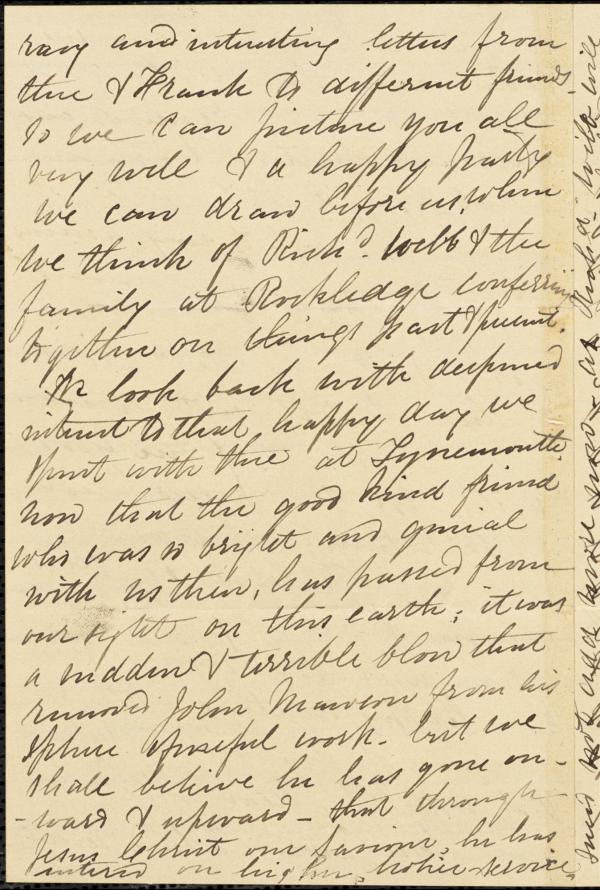 racy and interesting letters from
thee & Frank to different friends
so we can picture you all
very well & a happy party
we can draw before us, when
we think of Rich.d Webb & thee
family at Rockledge conferring
together on things past & present.
We look back with deepened
interest to that happy day we
spent with thee at Tynemouth
now that the good kind friend
who was so bright and genial
with us then, has passed from
our sight on this earth; it was
a sudden & terrible blow that
removed John Mawson from his
sphere of useful work - but we
shall believe he has gone on-
-ward & upward - that through
Jesus Christ our Saviour, he has
entered on higher, holier service